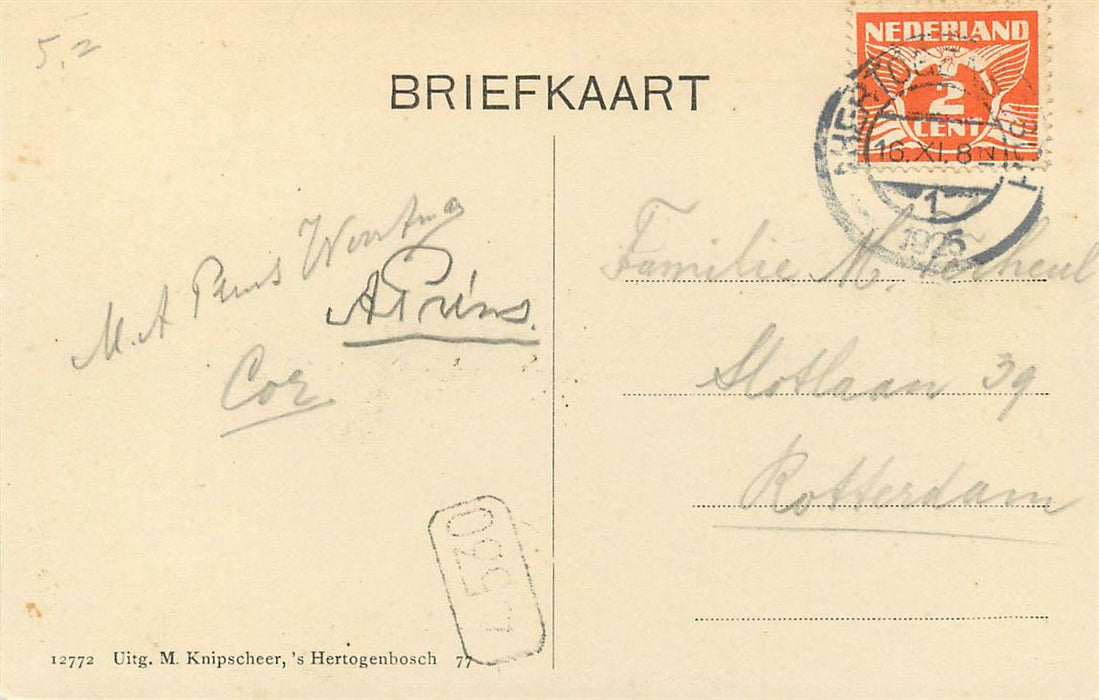 5,2
BRIEFKAART
NEDERLAND
2
CENT
16.XI.8
1
1925
M. A
A Prins.
Cor
Familie M. Verheul
Slotlaan 39
Rotterdam
530
12772 Uitg. M. Knipscheer, 's Hertogenbosch 77